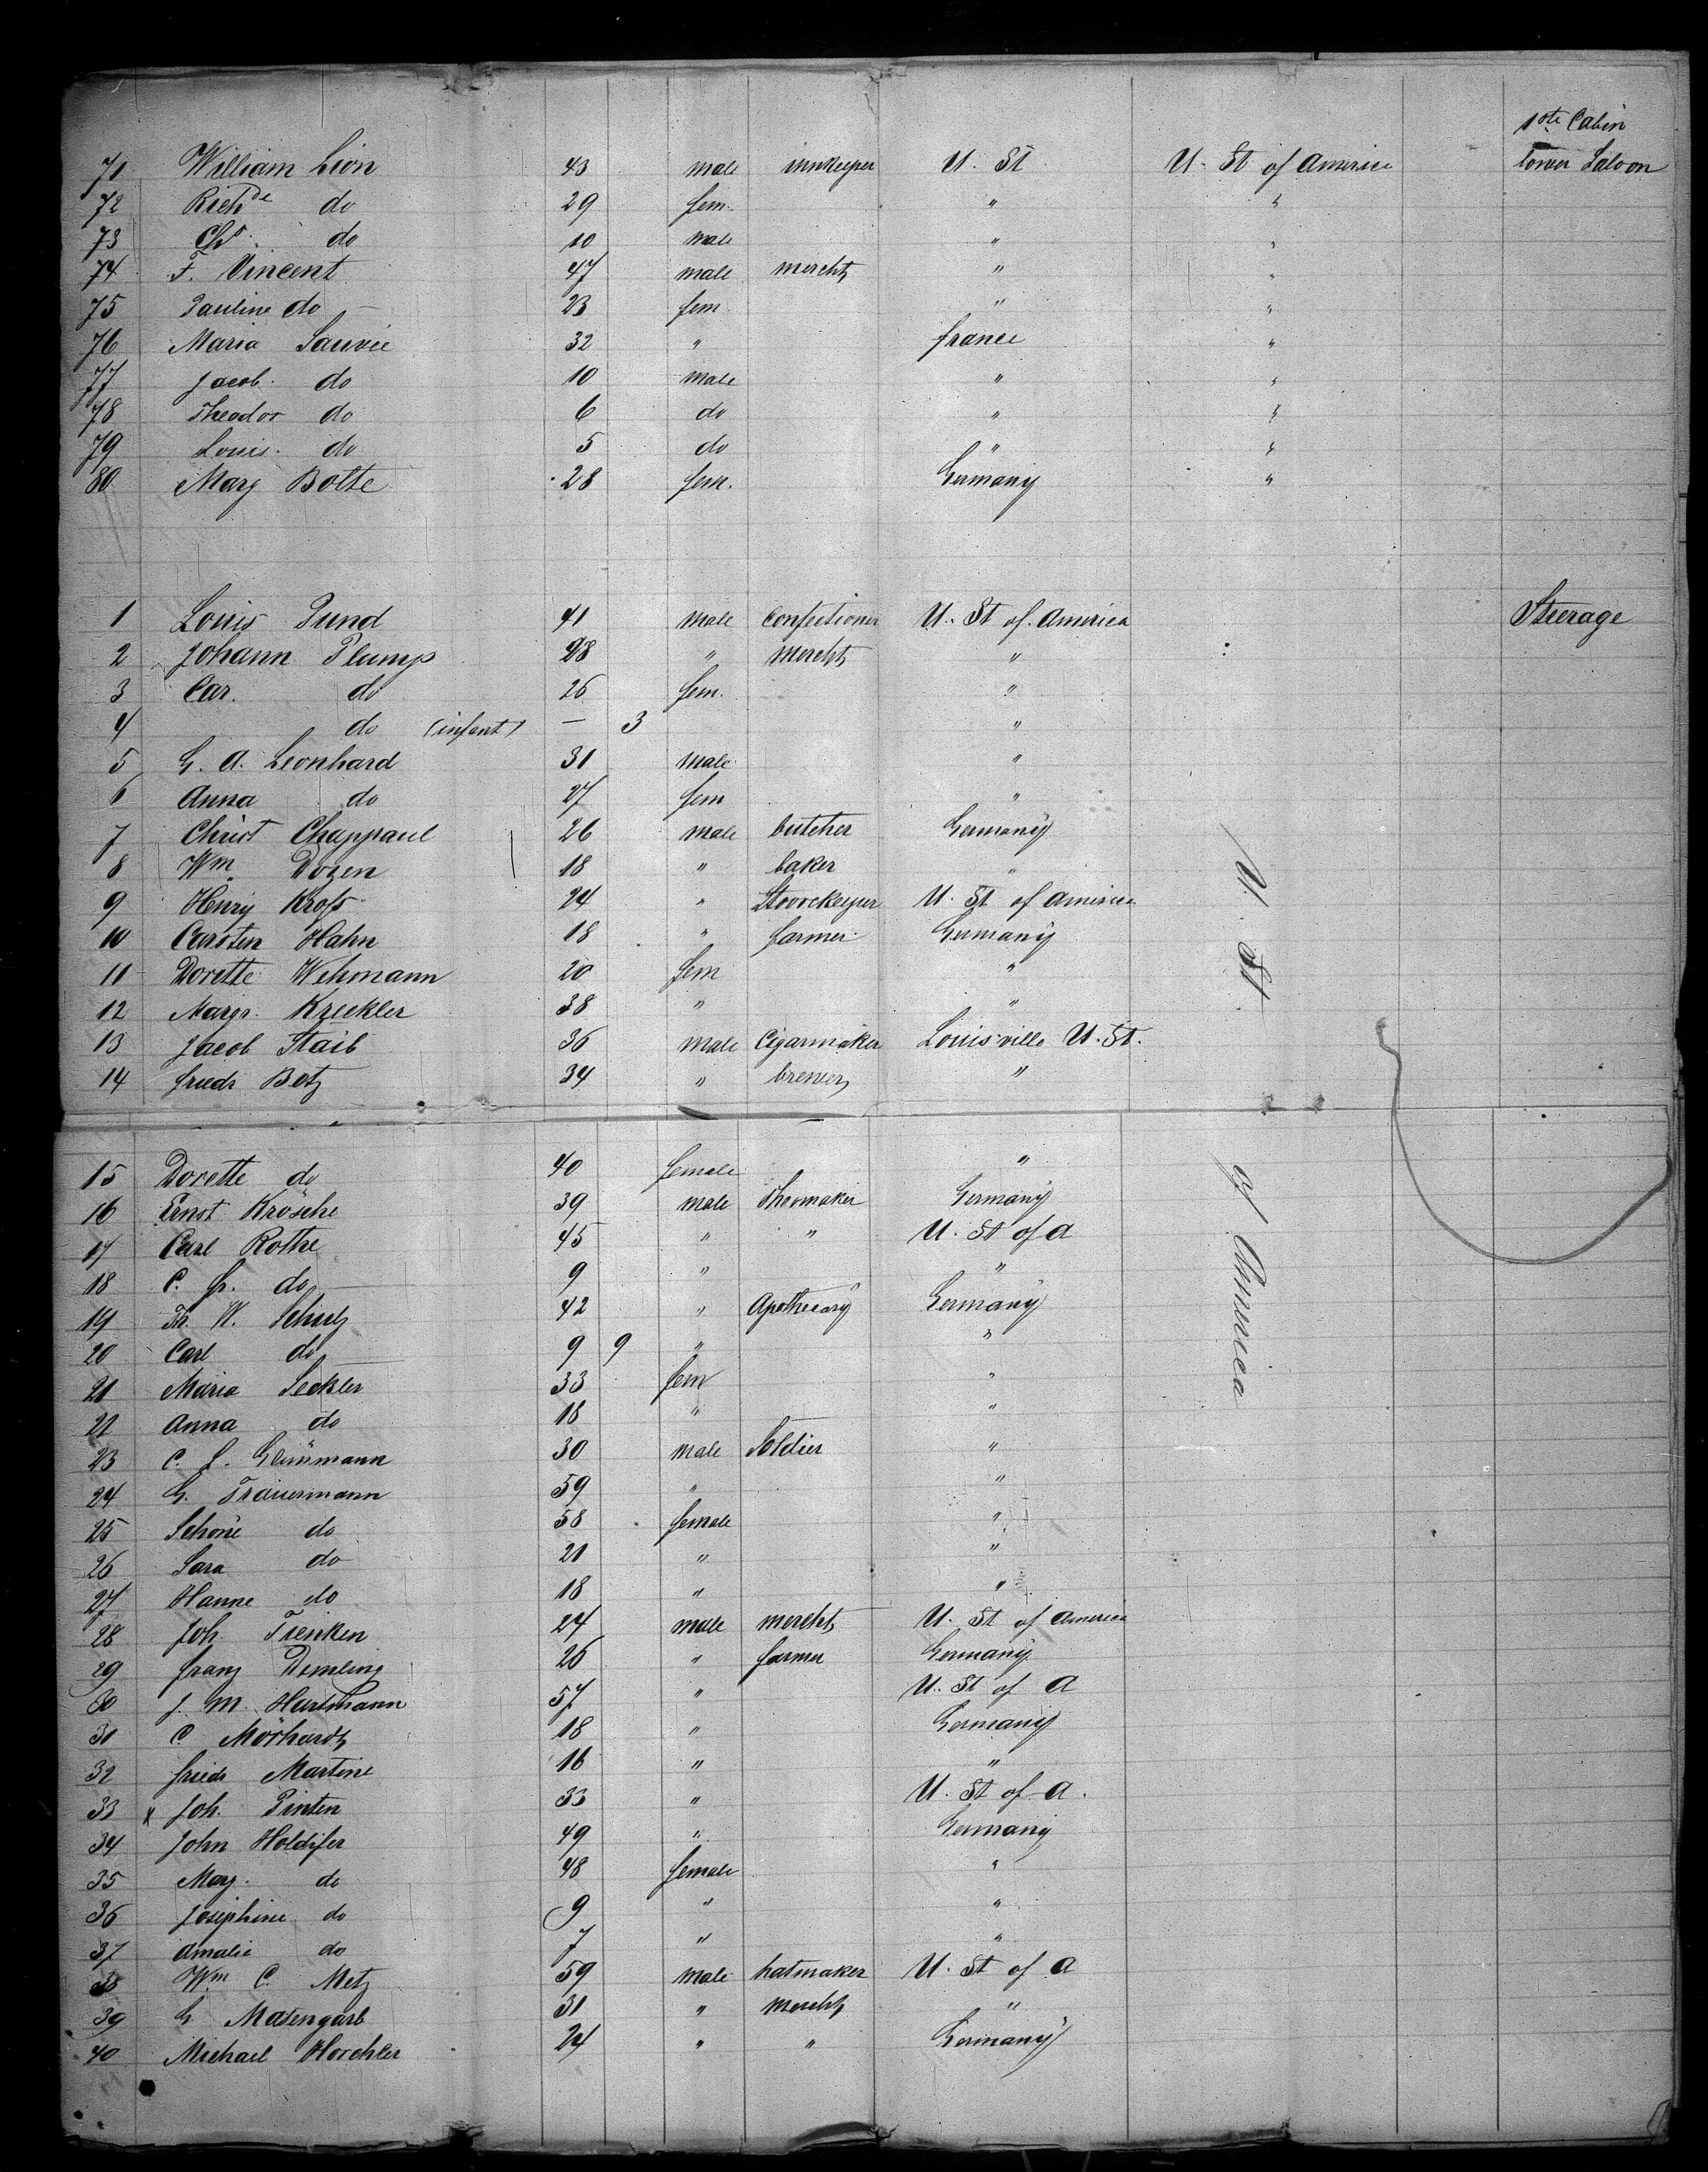 1ste Cabin
71 William Lion 43 male innkeeper U. St U. St of America lower Saloon
72 Richde do 29 fem. " "
73 Chs. do 10 male " "
74 F. Vincent 47 male mercht " "
75 Pauline do — 23 fem. " "
76 Maria Sauvie 32 " france "
77 Jacob. do 10 male " "
78 Theodor do 6 do " "
79 Louis. do 5 do " "
80 Marg Bolte 28 fem. Germany "
1 Louis Pund 41 male Confectioner U. St of America Steerage
2 Johann Plump 28 " mercht "
3 Car. do 26 fem. "
4 do (infant) — 3 "
5 G. A. Leonhard 31 male "
6 Anna do 27 fem "
7 Christ Chappaul 26 male butcher Germany
8 Wm. Dozen 18 " baker "
9 Henry Kross 24 " Stoorekeeper U. St of America
10 Carsten Hahn 18 " farmer Germany
11 Dorette Wehmann 20 fem "
12 Margr. Kreckler 38 " "
13 Jacob Staib 36 male Cigarmaker Louisville U. St.
14 friedr Betz 34 " brewer "
U. St. of America
15 Dorette do 40 female "
16 Ernst Krösche 39 male Shoomaker Germany
17 Carl Rothe 45 " " U. St of A
18 C. fr. do 9 " "
19 Th. W. Schulz 42 " Apothecary Germany
20 Carl do 9 9 " "
21 Maria Seckler 33 fem "
22 Anna do 18 " "
23 C. f. 30 male Soldier "
24 G. Trauermann 59 " "
25 Schöne do 58 female "
26 Sara do 21 " "
27 Hanne do 18 " "
28 Joh. Tienken 24 male mercht U. St of America
29 franz Demling 26 " farmer Germany
30 J. M. Hartmann 57 " U. St of A
31 C. Mörhardt 18 " Germany
32 friedr Martine 16 " "
33 x Joh. Pinten 33 " U. St of A.
34 John Holdifer 49 " Germany
35 Marg. do 48 female "
36 Josephine do 9 " "
37 Amalie do 7 " "
38 Wm C. Metz 59 male hatmaker U. St of A
39 G. Matengarb 31 " mercht "
40 Michael Horchler 24 " " Germany